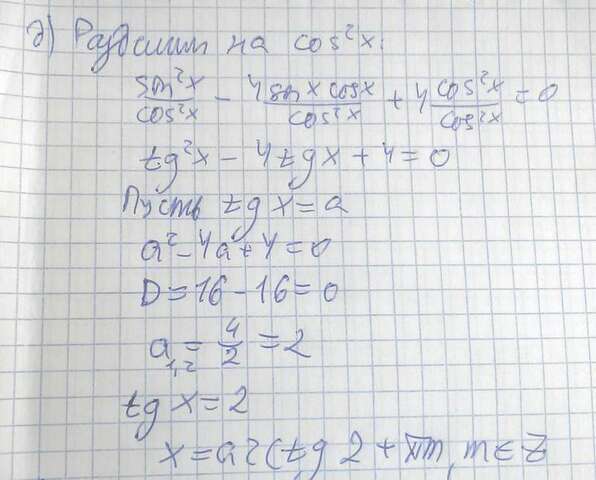 д) Разделим на cos²x:
sin²x/cos²x - 4sin x cos x/cos²x + 4 cos²x/cos²x = 0
tg²x - 4tg x + 4 = 0
Пусть tg x = a
a² - 4a + 4 = 0
D = 16 - 16 = 0
a₁,₂ = 4/2 = 2
tg x = 2
x = arctg 2 + πn, n ∈ Z